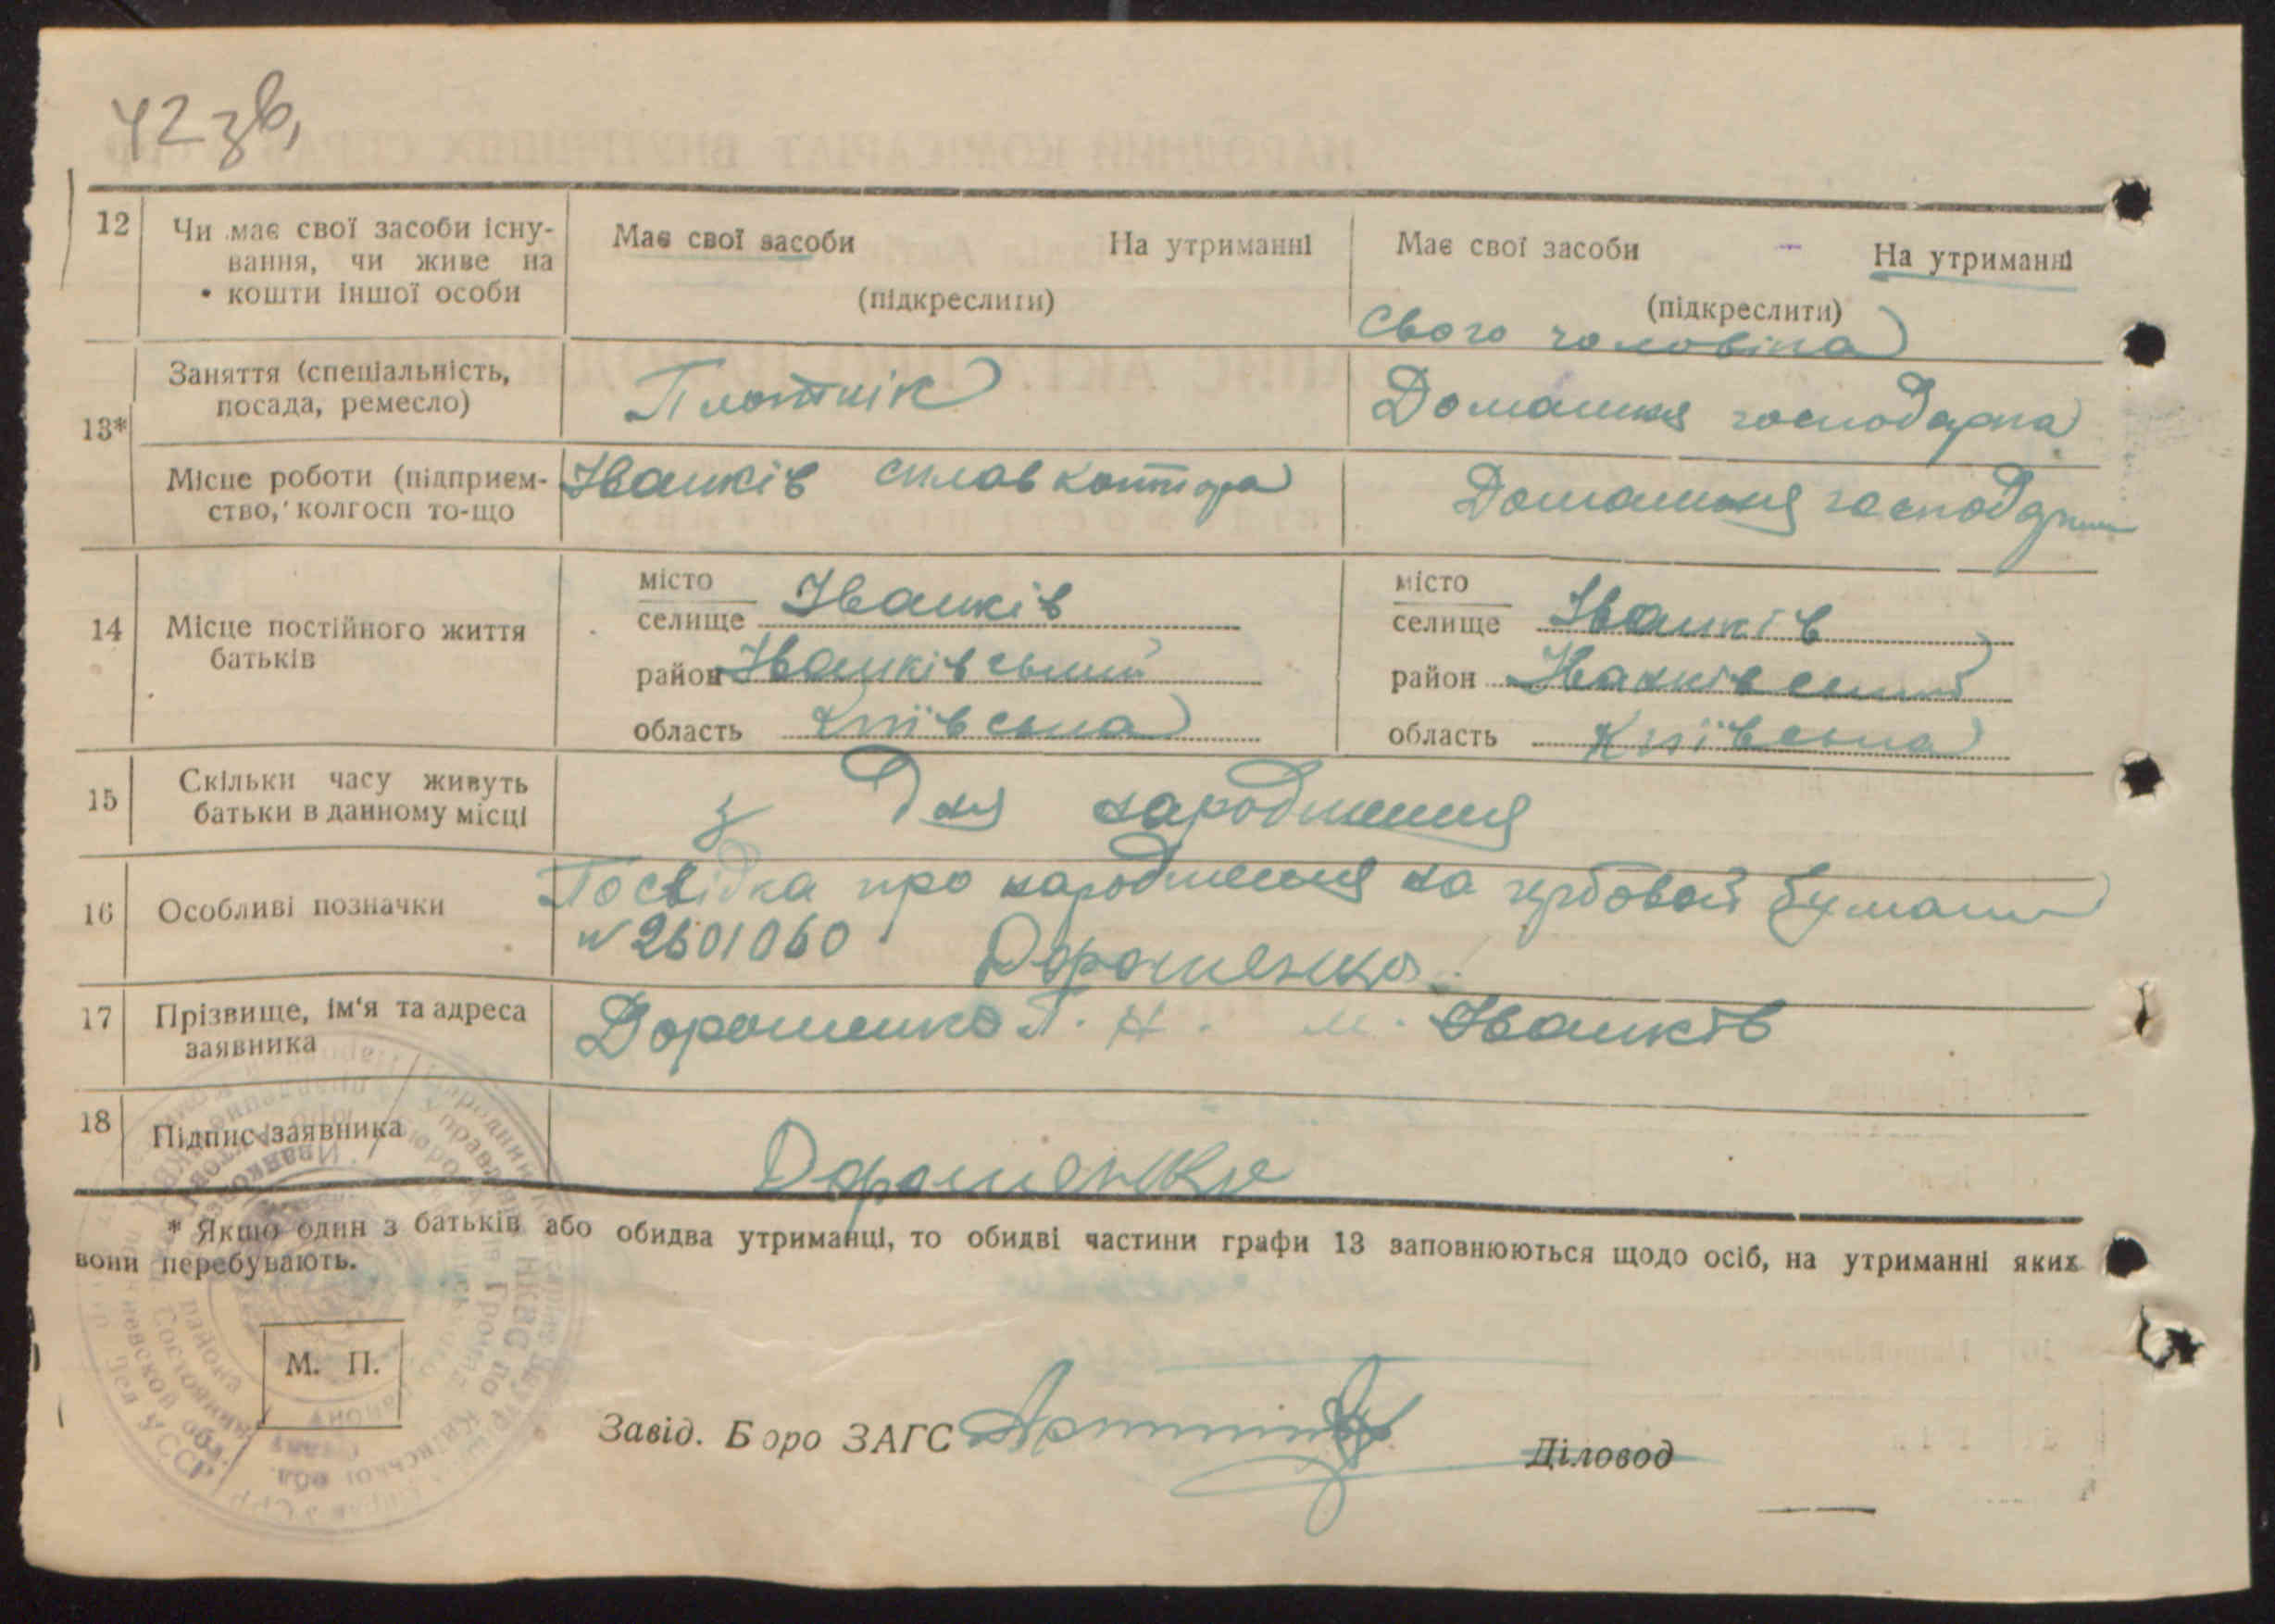 42 зв,
12 Чи має свої засоби існу- Має свої засоби На утриманні Має свої засоби - На утриманні
вання, чи живе на
кошти іншої особи (підкреслити) (підкреслити)
Свого чоловіка
13* Заняття (спеціальність, Плотнік Домашня господарка
посада, ремесло)
Місце роботи (підприєм- Іванків сплав контора Домашня господарка
ство, колгосп то-що
14 Місце постійного життя
батьків
місто місто
селище Іванків селище Іванків
район Іванківський район Іванківський
область Київська область Київська
15 Скільки часу живуть з Дня народження
батьки в данному місці
16 Особливі позначки Посвідка про народження на гербовой бумаги
№ 2601060 Дорошенко
17 Прізвище, ім'я та адреса Дорошенко Г. Н. м. Іванків
заявника
18 Підпис заявника Дорошенко
* Якщо один з батьків або обидва утриманці, то обидві частини графи 13 заповнюються щодо осіб, на утриманні яких
вони перебувають.
М. П.
Завід. Бюро ЗАГС Діловод